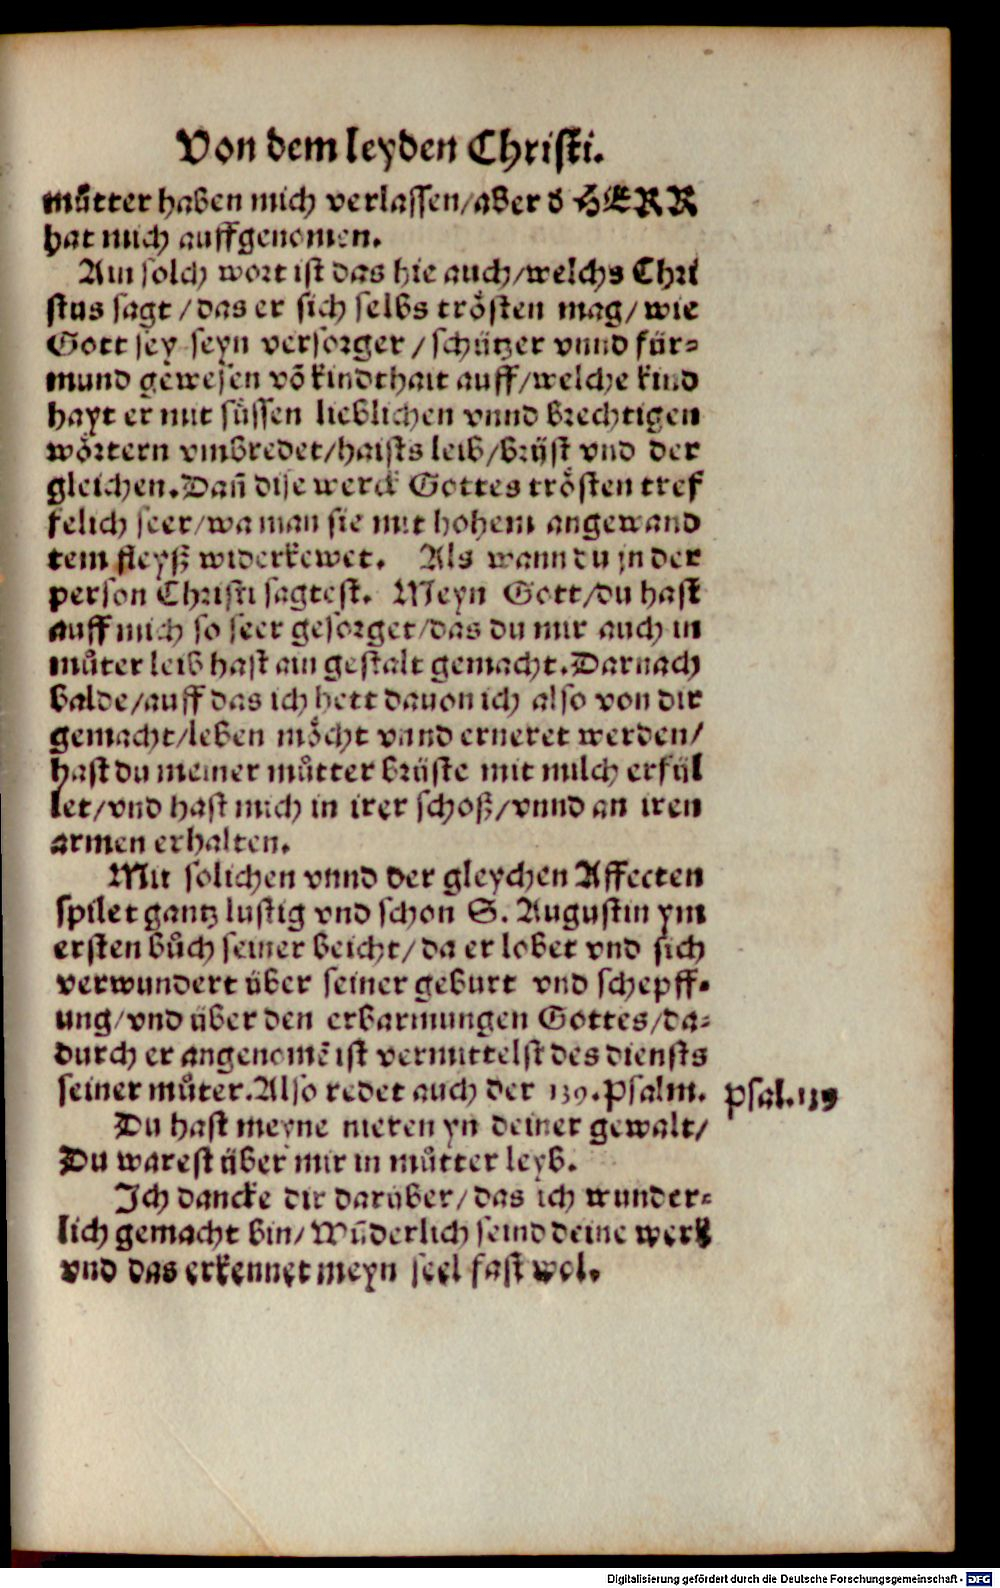 Von dem leyden Christi.
muͦtter haben mich verlassen/aber d HERR
hat mich auffgenomen.
Ain solch wort ist das hie auch/welchs Chri
stus sagt/das er sich selbs troͤsten mag/wie
Gott sey seyn versorger/schützer vnnd für-
mund gewesen võ kindthait auff/welche kind
hayt er mit suͤssen lieblichen vnnd brechtigen
woͤrtern vmbredet/haists leib/brüst vnd der
gleichen. Dañ dise werck Gottes troͤsten tref
felich seer/wa man sie mit hohem angewand
tem fleyß widerkewet. Als wann du jn der
person Christi sagtest. Meyn Gott/du hast
auff mich so seer gesorget/das du mir auch in
muͦter leib hast ain gestalt gemacht. Darnach
balde/auff das ich hett dauon ich also von dir
gemacht/leben moͤcht vnnd erneret werden/
hast du meiner muͦtter brüste mit milch erfül
let/vnd hast mich in irer schoß/vnnd an iren
armen erhalten.
Mit solichen vnnd der gleychen Affecten
spilet gantz lustig vnd schon S. Augustin ym
ersten buͦch seiner beicht/da er lobet vnd sich
verwundert über seiner geburt vnd schepff-
ung/vnd über den erbarmungen Gottes/da-
durch er angenomẽ ist vermittelst des diensts
seiner muͦter. Also redet auch der 139. Psalm.
Psal. 139
Du hast meyne nieren yn deiner gewalt/
Du warest über mir in muͦtter leyb.
Ich dancke dir darüber/das ich wunder-
lich gemacht bin/Wũderlich seind deine werk
vnd das erkennet meyn seel fast wol.
Digitalisierung gefördert durch die Deutsche Forschungsgemeinschaft - DFG